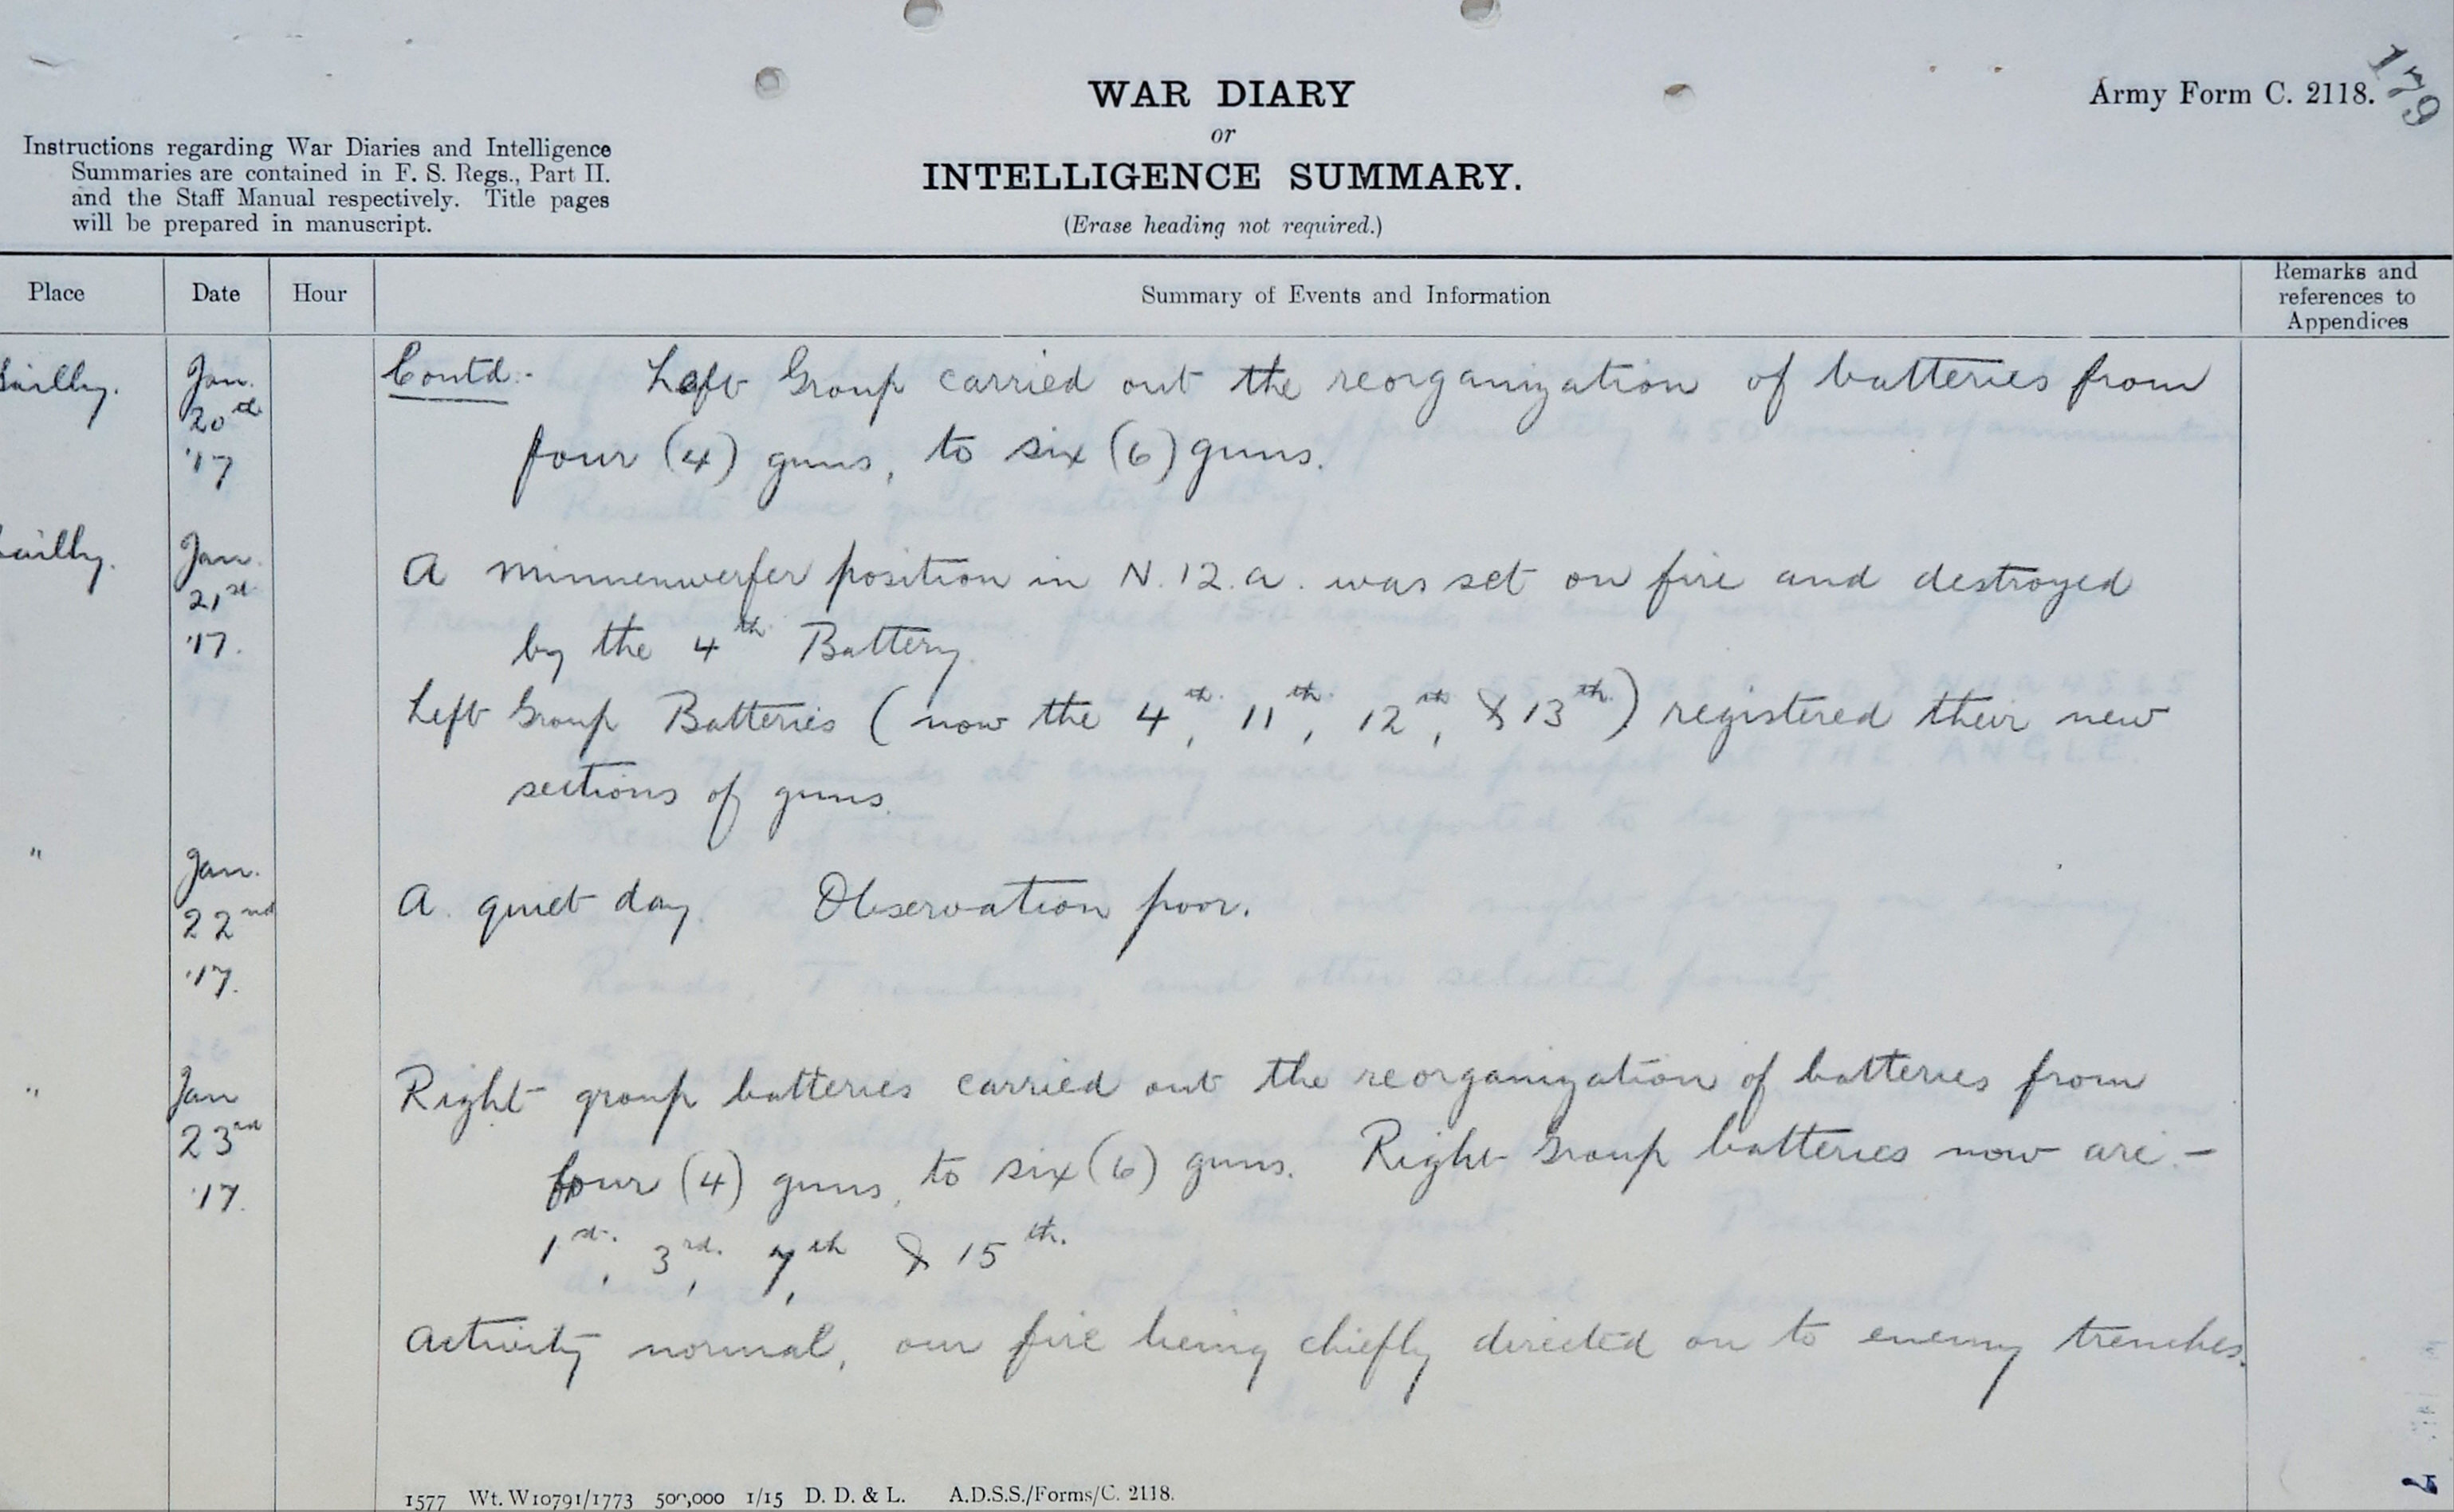 179
Army Form C. 2118.
WAR DIARY
or
INTELLIGENCE SUMMARY.
(Erase heading not required.)
Instructions regarding War Diaries and Intelligence
Summaries are contained in F. S. Regs., Part II.
and the Staff Manual respectively. Title pages
will be prepared in manuscript.
Place Date Hour Summary of Events and Information Remarks and references to Appendices
Sailly. Jan. 20th '17 Contd:- Left Group carried out the reorganization of batteries from
four (4) guns, to six (6) guns.
Sailly. Jan. 21st '17. A minnenwerfer position in N.12.a. was set on fire and destroyed
by the 4th Battery.
Left Group Batteries (now the 4th, 11th, 12th, & 13th) registered their new
sections of guns.
" Jan. 22nd '17. A quiet day. Observation poor.
" Jan 23rd '17. Right group batteries carried out the reorganization of batteries from
four (4) guns, to six (6) guns. Right Group batteries now are -
1st, 3rd, 7th & 15th.
Activity normal, our fire being chiefly directed on to enemy trenches.
1577 Wt. W10791/1773 500,000 1/15 D. D. & L. A.D.S.S./Forms/C. 2118.